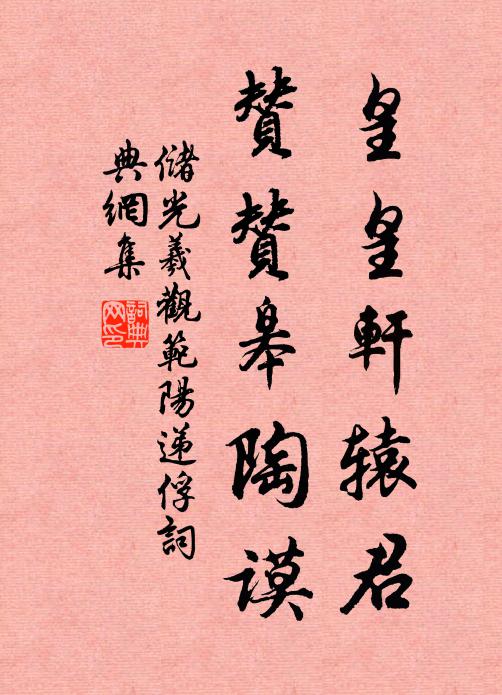 皇皇軒辕君
贊贊皋陶謨
儲光羲觀範陽递俘詞
典網集
詞典網印